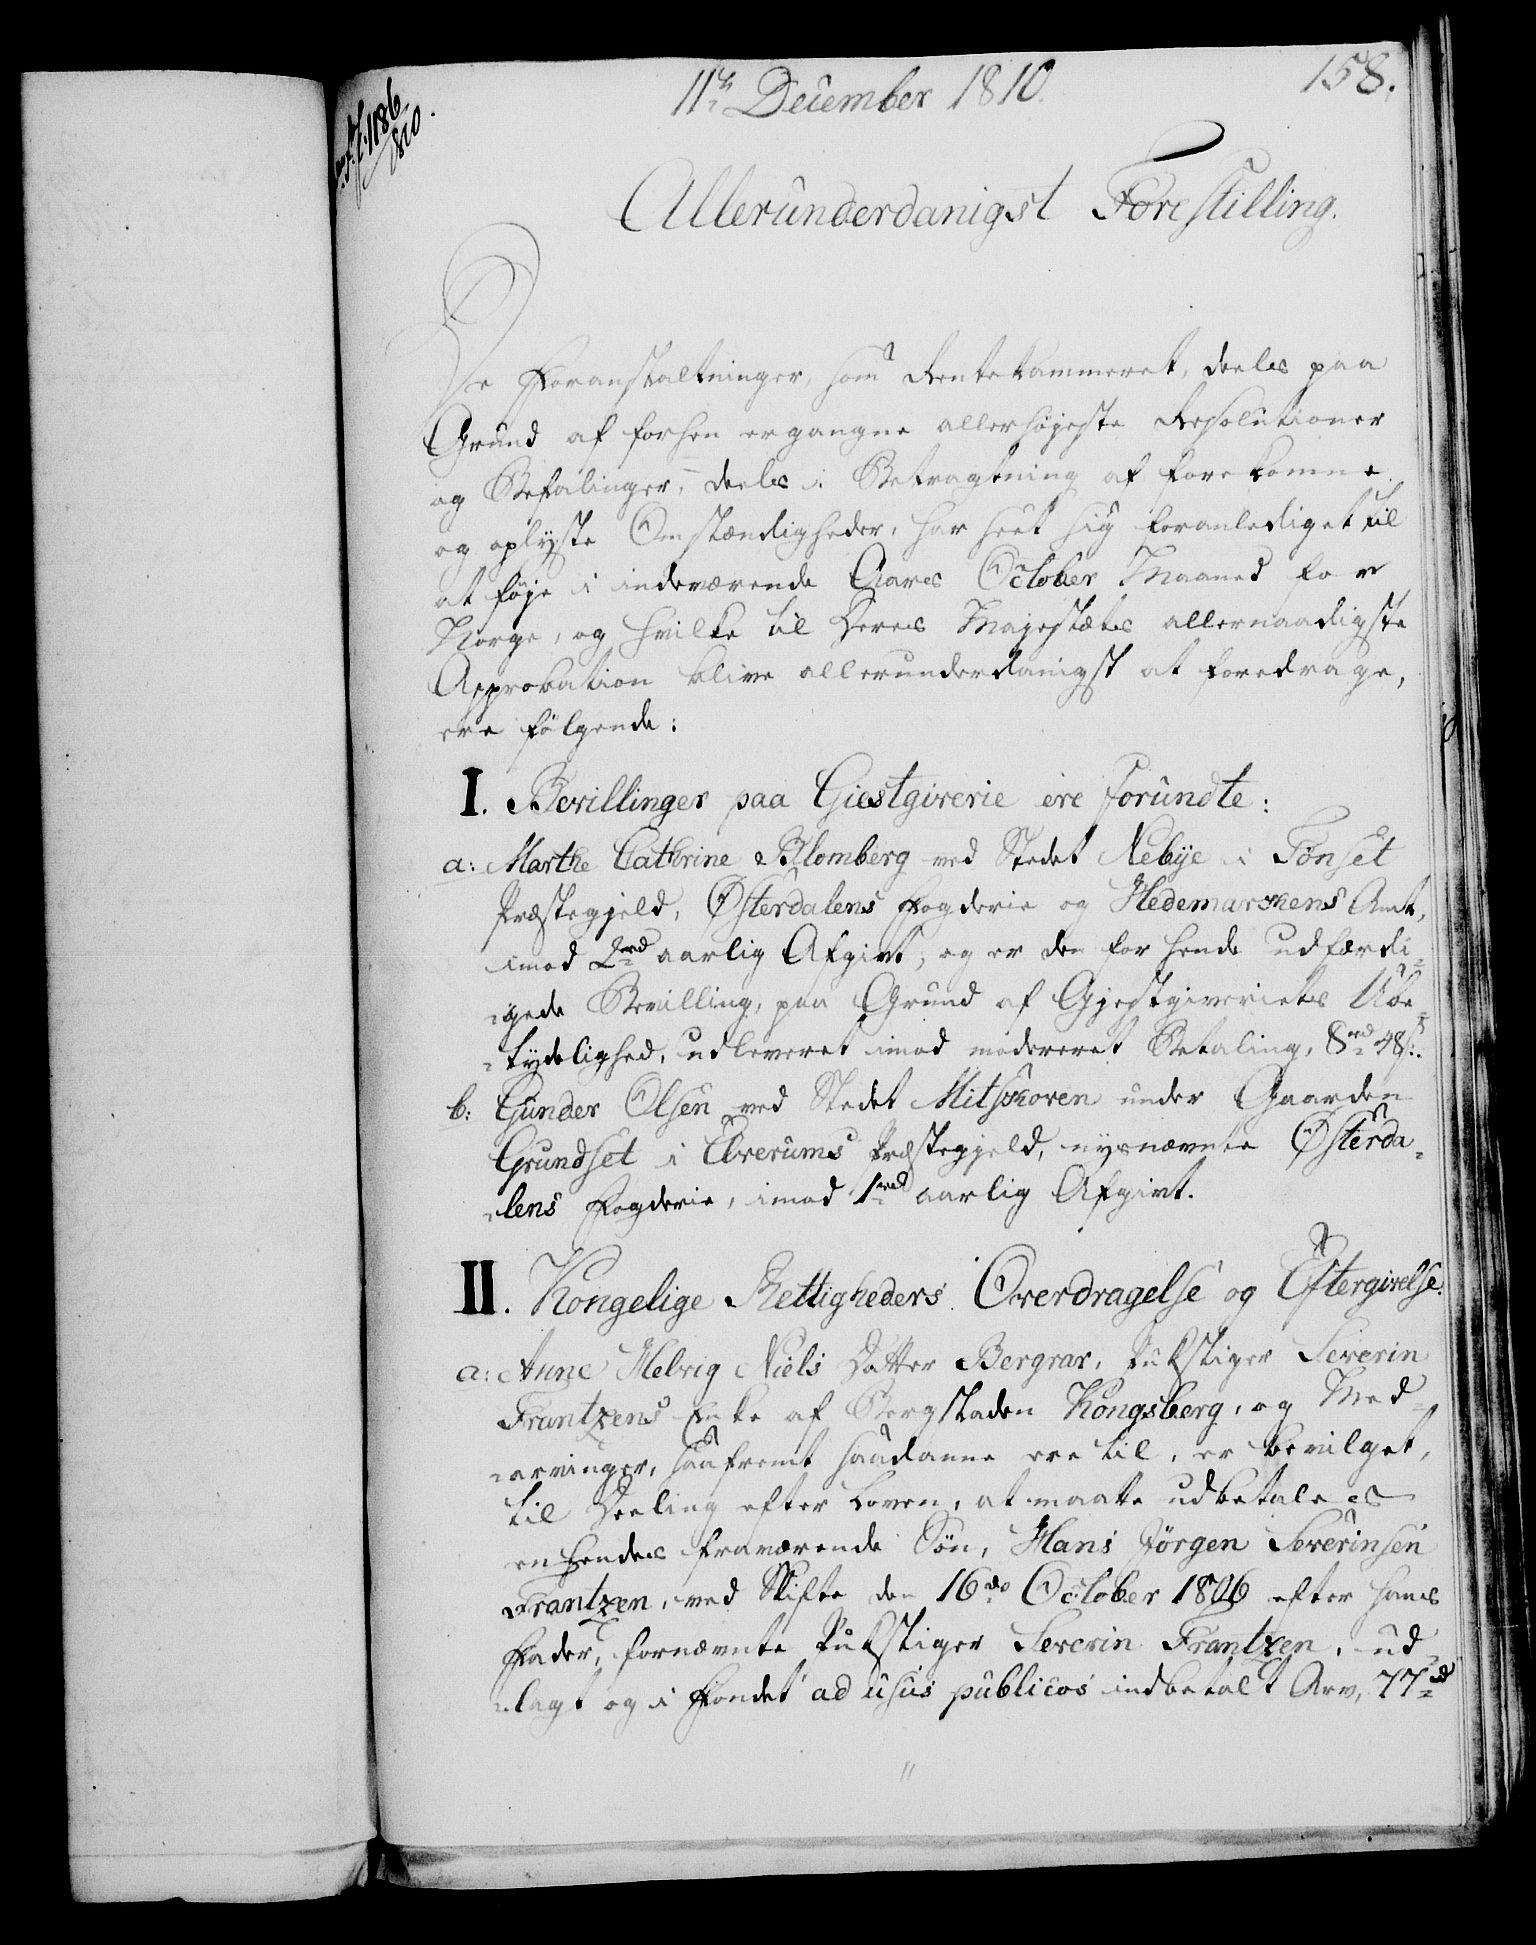 11te December 1810.
158.
1186/810.
Allerunderdanigst Forestilling.
De Foranstaltninger, som Rentekammeret, deels paa
Grund af forhen ergangne allerhøjeste Resolutioner
og Befalinger, deels i Betragtning af forekomne
og oplyste Omstændigheder, har seet sig foranlediget til
at føje i indeværende Aars October Maaned for
Norge, og hvilke til Deres Majestæts allernaadigste
Approbation blive allerunderdanigst at foredrage,
ere følgende:
I. Bevillinger paa Giestgiverie ere forundte:
a: Marthe Cathrine Blomberg ved Stedet Nebye i Tønset
Præstegjeld, Østerdalens Fogderie og Hedemarkens Amt,
imod 2rd aarlig Afgivt, og er den for hende udfærdi-
gede Bevilling, paa Grund af Gjestgiveriets Ube-
tydelighed, udleveret imod modereret Betaling, 8rd 48s.
b: Gunder Olsen ved Stedet Mitskoven under Gaarden
Grundset i Elverums Præstegjeld, nysnævnte Østerda-
lens Fogderie, imod 1rd aarlig Afgivt.
II. Kongelige Rettigheders Overdragelse og Eftergivelse:
a: Anne Helvig Niels Datter Bergrav, Pukstiger Severin
Frantzens Enke af Bergstaden Kongsberg, og Med-
arvinger, saafremt saadanne ere til, er bevilget,
til Deeling efter Loven, at maatte udbetales
en hendes fraværende Søn, Hans Jørgen Severinsen
Frantzen, ved Skifte den 16de October 1806 efter hans
Fader, fornævnte Pukstiger Severin Frantzen, ud-
lagt og i Fondet ad usus publicos indbetalt Arv, 77rd